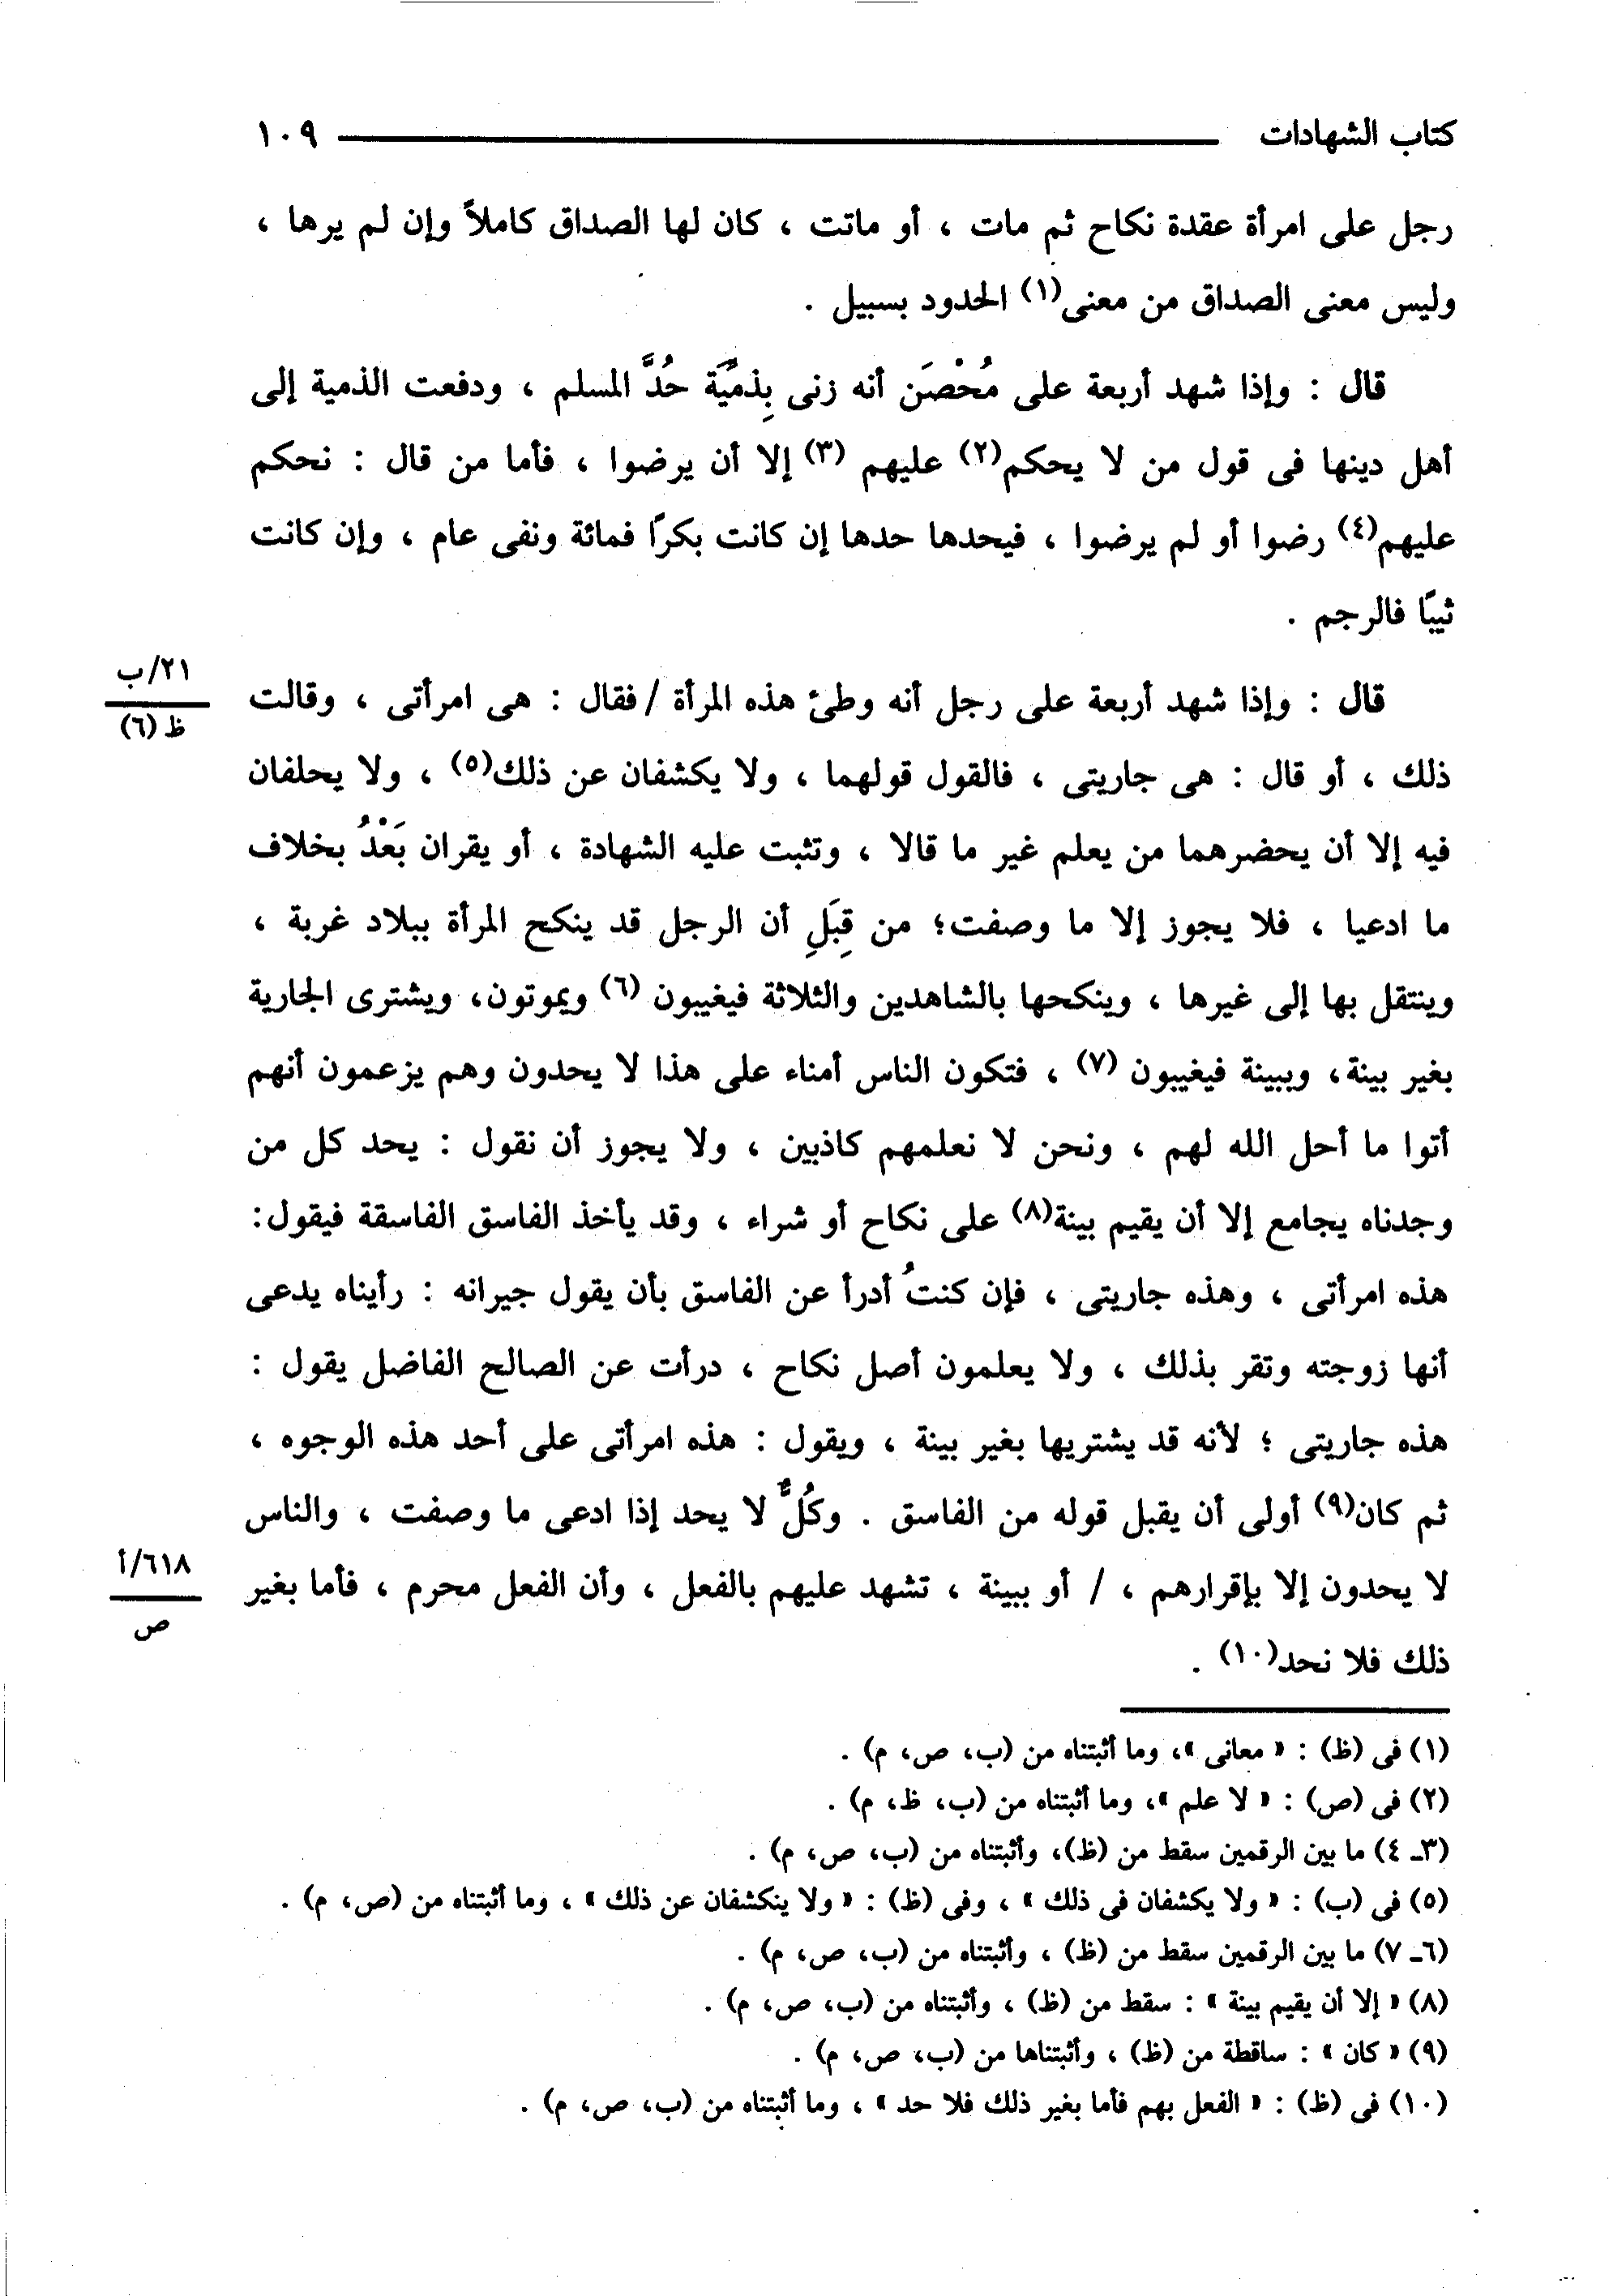 كتاب الشهادات ١٠٩
رجل على امرأة عقدة نكاح ثم مات ، أو ماتت ، كان لها الصداق كاملاً وإن لم يرها ،
وليس معنى الصداق من معنى(١) الحدود بسبيل .
قال : وإذا شهد أربعة على مُحْصَن أنه زنى بِذمِّيَّة حُدَّ المسلم ، ودفعت الذمية إلى
أهل دينها فى قول من لا يحكم(٢) عليهم (٣) إلا أن يرضوا ، فأما من قال : نحكم
عليهم(٤) رضوا أو لم يرضوا ، فيحدها حدها إن كانت بكرًا فمائة ونفى عام ، وإن كانت
ثيبًا فالرجم .
٢١/ب
ظ (٦)
قال : وإذا شهد أربعة على رجل أنه وطئ هذه المرأة / فقال : هى امرأتى ، وقالت
ذلك ، أو قال : هى جاريتى ، فالقول قولهما ، ولا يكشفان عن ذلك(٥) ، ولا يحلفان
فيه إلا أن يحضرهما من يعلم غير ما قالا ، وتثبت عليه الشهادة ، أو يقران بَعْدُ بخلاف
ما ادعيا ، فلا يجوز إلا ما وصفت؛ من قِبَلِ أن الرجل قد ينكح المرأة ببلاد غربة ،
وينتقل بها إلى غيرها ، وينكحها بالشاهدين والثلاثة فيغيبون (٦) ويموتون، ويشترى الجارية
بغير بينة، وببينة فيغيبون (٧) ، فتكون الناس أمناء على هذا لا يحدون وهم يزعمون أنهم
أتوا ما أحل الله لهم ، ونحن لا نعلمهم كاذبين ، ولا يجوز أن نقول : يحد كل من
وجدناه يجامع إلا أن يقيم بينة(٨) على نكاح أو شراء ، وقد يأخذ الفاسق الفاسقة فيقول:
هذه امرأتى ، وهذه جاريتى ، فإن كنتُ أدرأ عن الفاسق بأن يقول جيرانه : رأيناه يدعى
أنها زوجته وتقر بذلك ، ولا يعلمون أصل نكاح ، درأت عن الصالح الفاضل يقول :
هذه جاريتى ؛ لأنه قد يشتريها بغير بينة ، ويقول : هذه امرأتى على أحد هذه الوجوه ،
ثم كان(٩) أولى أن يقبل قوله من الفاسق . وكُلٌّ لا يحد إذا ادعى ما وصفت ، والناس
٦١٨/أ
ص
لا يحدون إلا بإقرارهم ، / أو ببينة ، تشهد عليهم بالفعل ، وأن الفعل محرم ، فأما بغير
ذلك فلا نحد(١٠) .
(١) فى (ظ) : « معانى »، وما أثبتناه من (ب، ص، م) .
(٢) فى (ص) : « لا علم »، وما أثبتناه من (ب، ظ، م) .
(٣ـ ٤) ما بين الرقمين سقط من (ظ)، وأثبتناه من (ب، ص، م) .
(٥) فى (ب) : « ولا يكشفان فى ذلك » ، وفى (ظ) : « ولا ينكشفان عن ذلك » ، وما أثبتناه من (ص، م) .
(٦ـ ٧) ما بين الرقمين سقط من (ظ) ، وأثبتناه من (ب، ص، م) .
(٨) « إلا أن يقيم بينة » : سقط من (ظ) ، وأثبتناه من (ب، ص، م) .
(٩) « كان » : ساقطة من (ظ) ، وأثبتناها من (ب، ص، م) .
(١٠) فى (ظ) : « الفعل بهم فأما بغير ذلك فلا حد » ، وما أثبتناه من (ب، ص، م) .